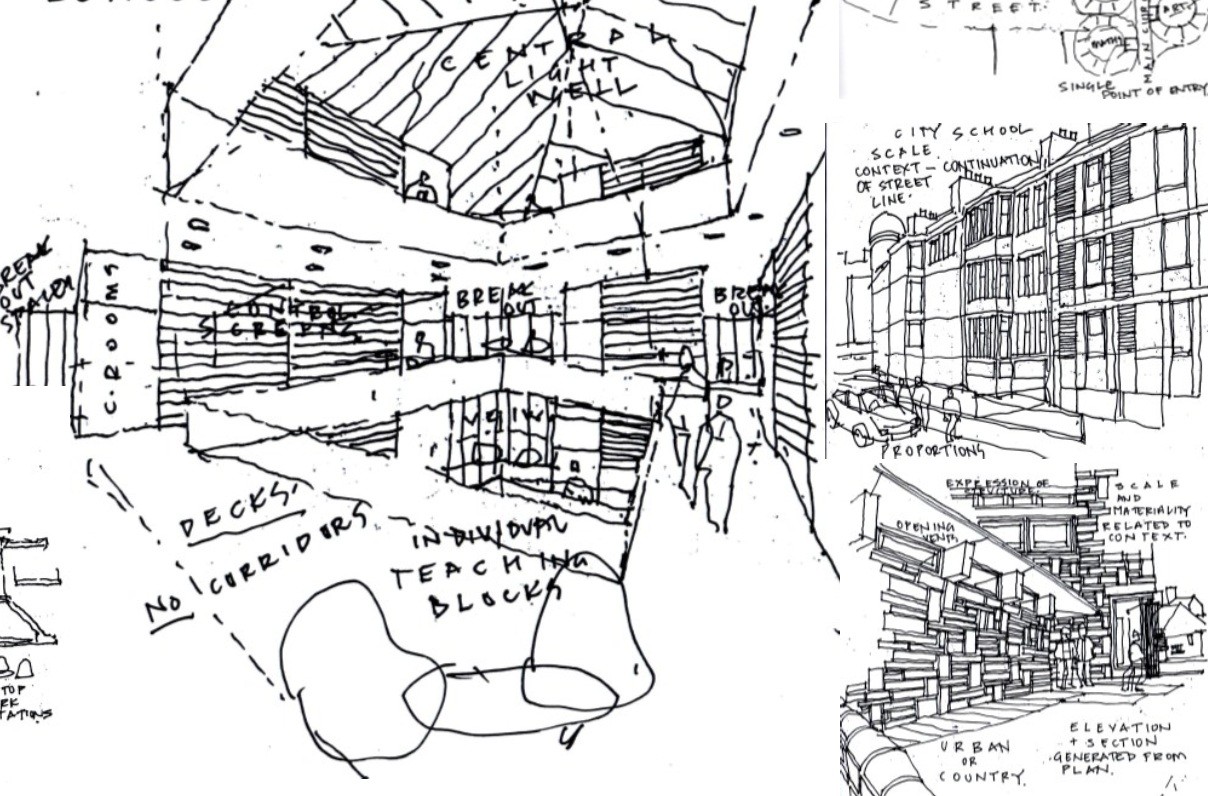 CENTRAL
LIGHT
WELL
BREAK
OUT
C.ROOMS
CONTROL
SCREENS
BREAK
OUT
BREAK
OUT
DECKS.
NO CORRIDORS
INDIVIDUAL
TEACHING
BLOCKS
TOP
STREET.
MATHS
ART
SINGLE
POINT OF ENTRY
CITY SCHOOL
SCALE
CONTEXT – CONTINUATION
OF STREET
LINE.
PROPORTIONS
EXPRESSION OF
STRUCTURE.
OPENING
VENTS
SCALE
AND
MATERIALITY
RELATED TO
CONTEXT.
URBAN
OR
COUNTRY.
ELEVATION
+ SECTION
GENERATED FROM
PLAN.